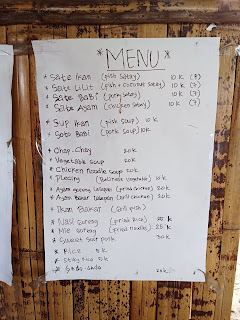 *MENU*
* Sate Ikan (fish satay) 10 k (7)
* Sate Lilit (fish + coconut satay) 10 k (7)
* Sate Babi (pork satay) 10 k (7)
* Sate Ayam (chicken satay) 10 k (7)
* Sup Ikan (fish soup) 10 k
* Soto Babi (pork soup) 10 k
* Chap-Chay 20 k
* Vegetable soup 20 k
* Chicken Noodle soup 20 k
* Plecing (Balinese vegetable) 10 k
* Ayam goreng Lalapan (fried chicken) 20 k
* Ayam Bakar Lalapan (grill chicken) 20 k
* Ikan Bakar (Grill fish)
* Nasi Goreng (fried Rice) 25 k
* Mie Goreng (fried noodles) 25 k
* Sweet sour pork 30 k
* Rice 5 k
* Sticky Rice 5 k